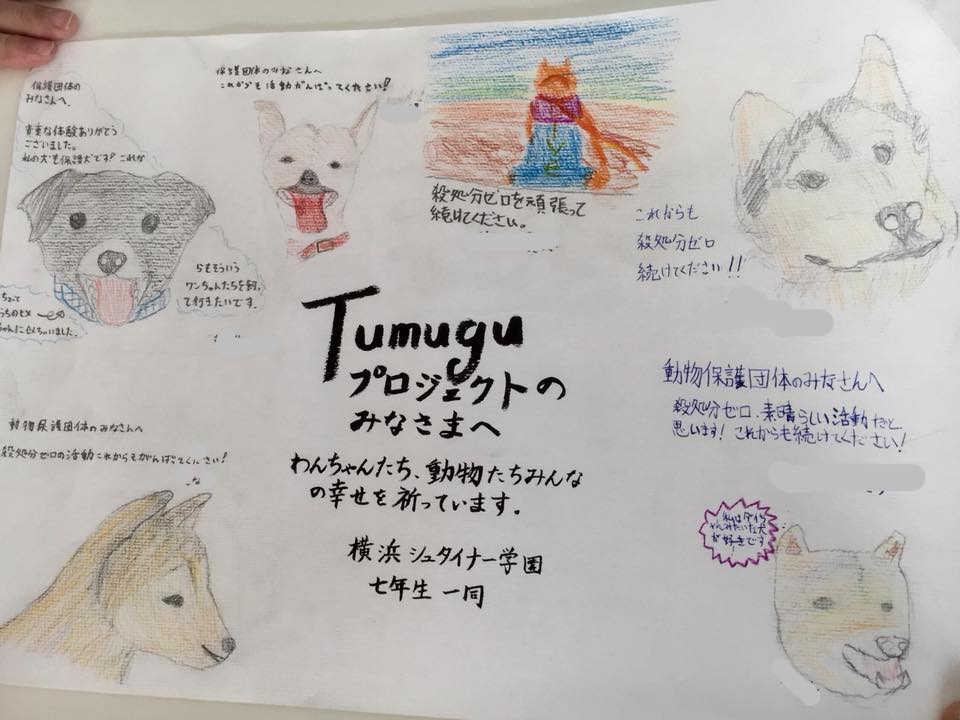 保護団体の
みなさんへ、
貴重な体験ありがとう
ございました。
私の犬も保護犬です! これか
らもそういう
ワンちゃんたちを飼っ
て行きたいです。
ちょって
うちのヒメ
ちゃんに
ちゃいました。
保護団体のみなさんへ
これからも活動がんばってください!
殺処分ゼロを頑張って
続けてください。
これからも
殺処分ゼロ
続けてください!!
Tumugu
プロジェクトの
みなさまへ
わんちゃんたち、動物たちみんな
の幸せを祈っています。
横浜シュタイナー学園
七年生 一同
動物保護団体のみなさんへ
殺処分ゼロの活動これからもがんばってください!
動物保護団体のみなさんへ
殺処分ゼロ、素晴らしい活動だと
思います! これからも続けてください!
私はダイち
ゃんみたいな犬
が好きです